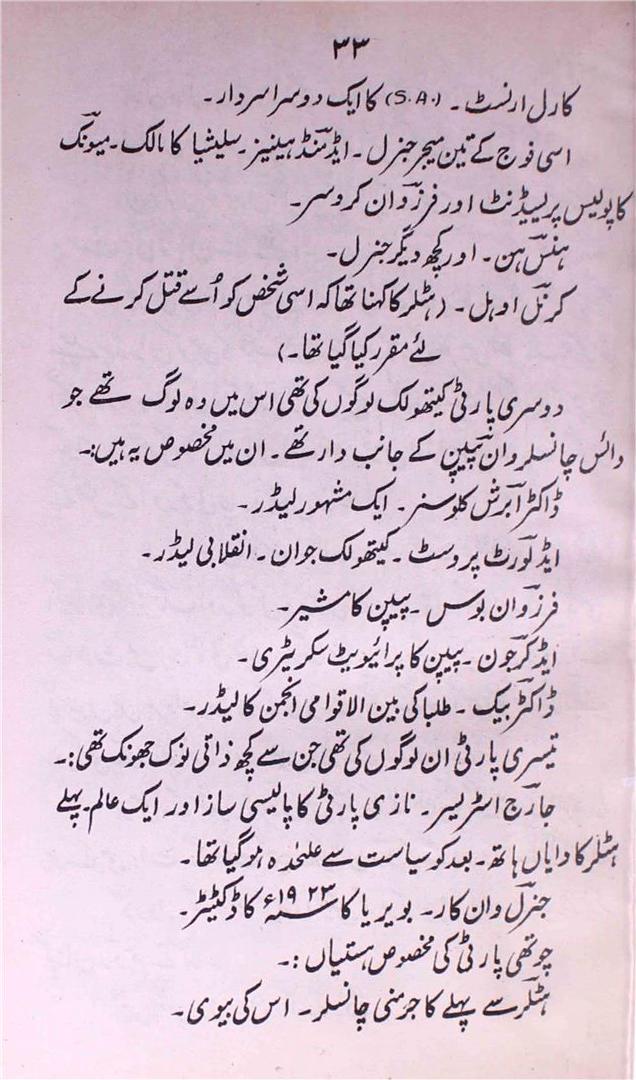 ۳۳
کارل ارنسٹ ۔ (S.A.) کا ایک دوسرا سردار ۔
اسی فوج کے تین میجر جنرل ۔ ایڈمنڈ ہینیز ۔ سلیشیا کا مالک ۔ میونک
کا پولیس پریسیڈنٹ اور فرزوان کروسر ۔
ہنس ہن ۔ اور کچھ دیگر جنرل ۔
کرنل اوہل ۔ (ہٹلر کا کہنا تھا کہ اسی شخص کو اُسے قتل کرنے کے
لئے مقرر کیا گیا تھا ۔)
دوسری پارٹی کیتھولک لوگوں کی تھی اس میں وہ لوگ تھے جو
وائس چانسلر وان پیپن کے جانب دار تھے ۔ ان میں مخصوص یہ ہیں :۔
ڈاکٹر ابرش کلوسنر ۔ ایک مشہور لیڈر ۔
ایڈلورٹ پروسٹ ۔ کیتھولک جوان ۔ انقلابی لیڈر ۔
فرزوان بوس ۔ پیپن کا مشیر ۔
ایڈگر جون ۔ پیپن کا پرائیویٹ سکریٹری ۔
ڈاکٹر بیک ۔ طلبا کی بین الاقوامی انجمن کا لیڈر ۔
تیسری پارٹی ان لوگوں کی تھی جن سے کچھ ذاتی نوک جھونک تھی :۔
جارج اسٹریسر ۔ نازی پارٹی کا پالیسی ساز اور ایک عالم ۔ پہلے
ہٹلر کا دایاں ہاتھ ۔ بعد کو سیاست سے علٰحدہ ہو گیا تھا ۔
جنرل وان کار ۔ بویریا کا سنہ ۱۹۲۳ء کا ڈکٹیٹر ۔
چوتھی پارٹی کی مخصوص ہستیاں :۔
ہٹلر سے پہلے کا جرمنی چانسلر ۔ اس کی بیوی ۔